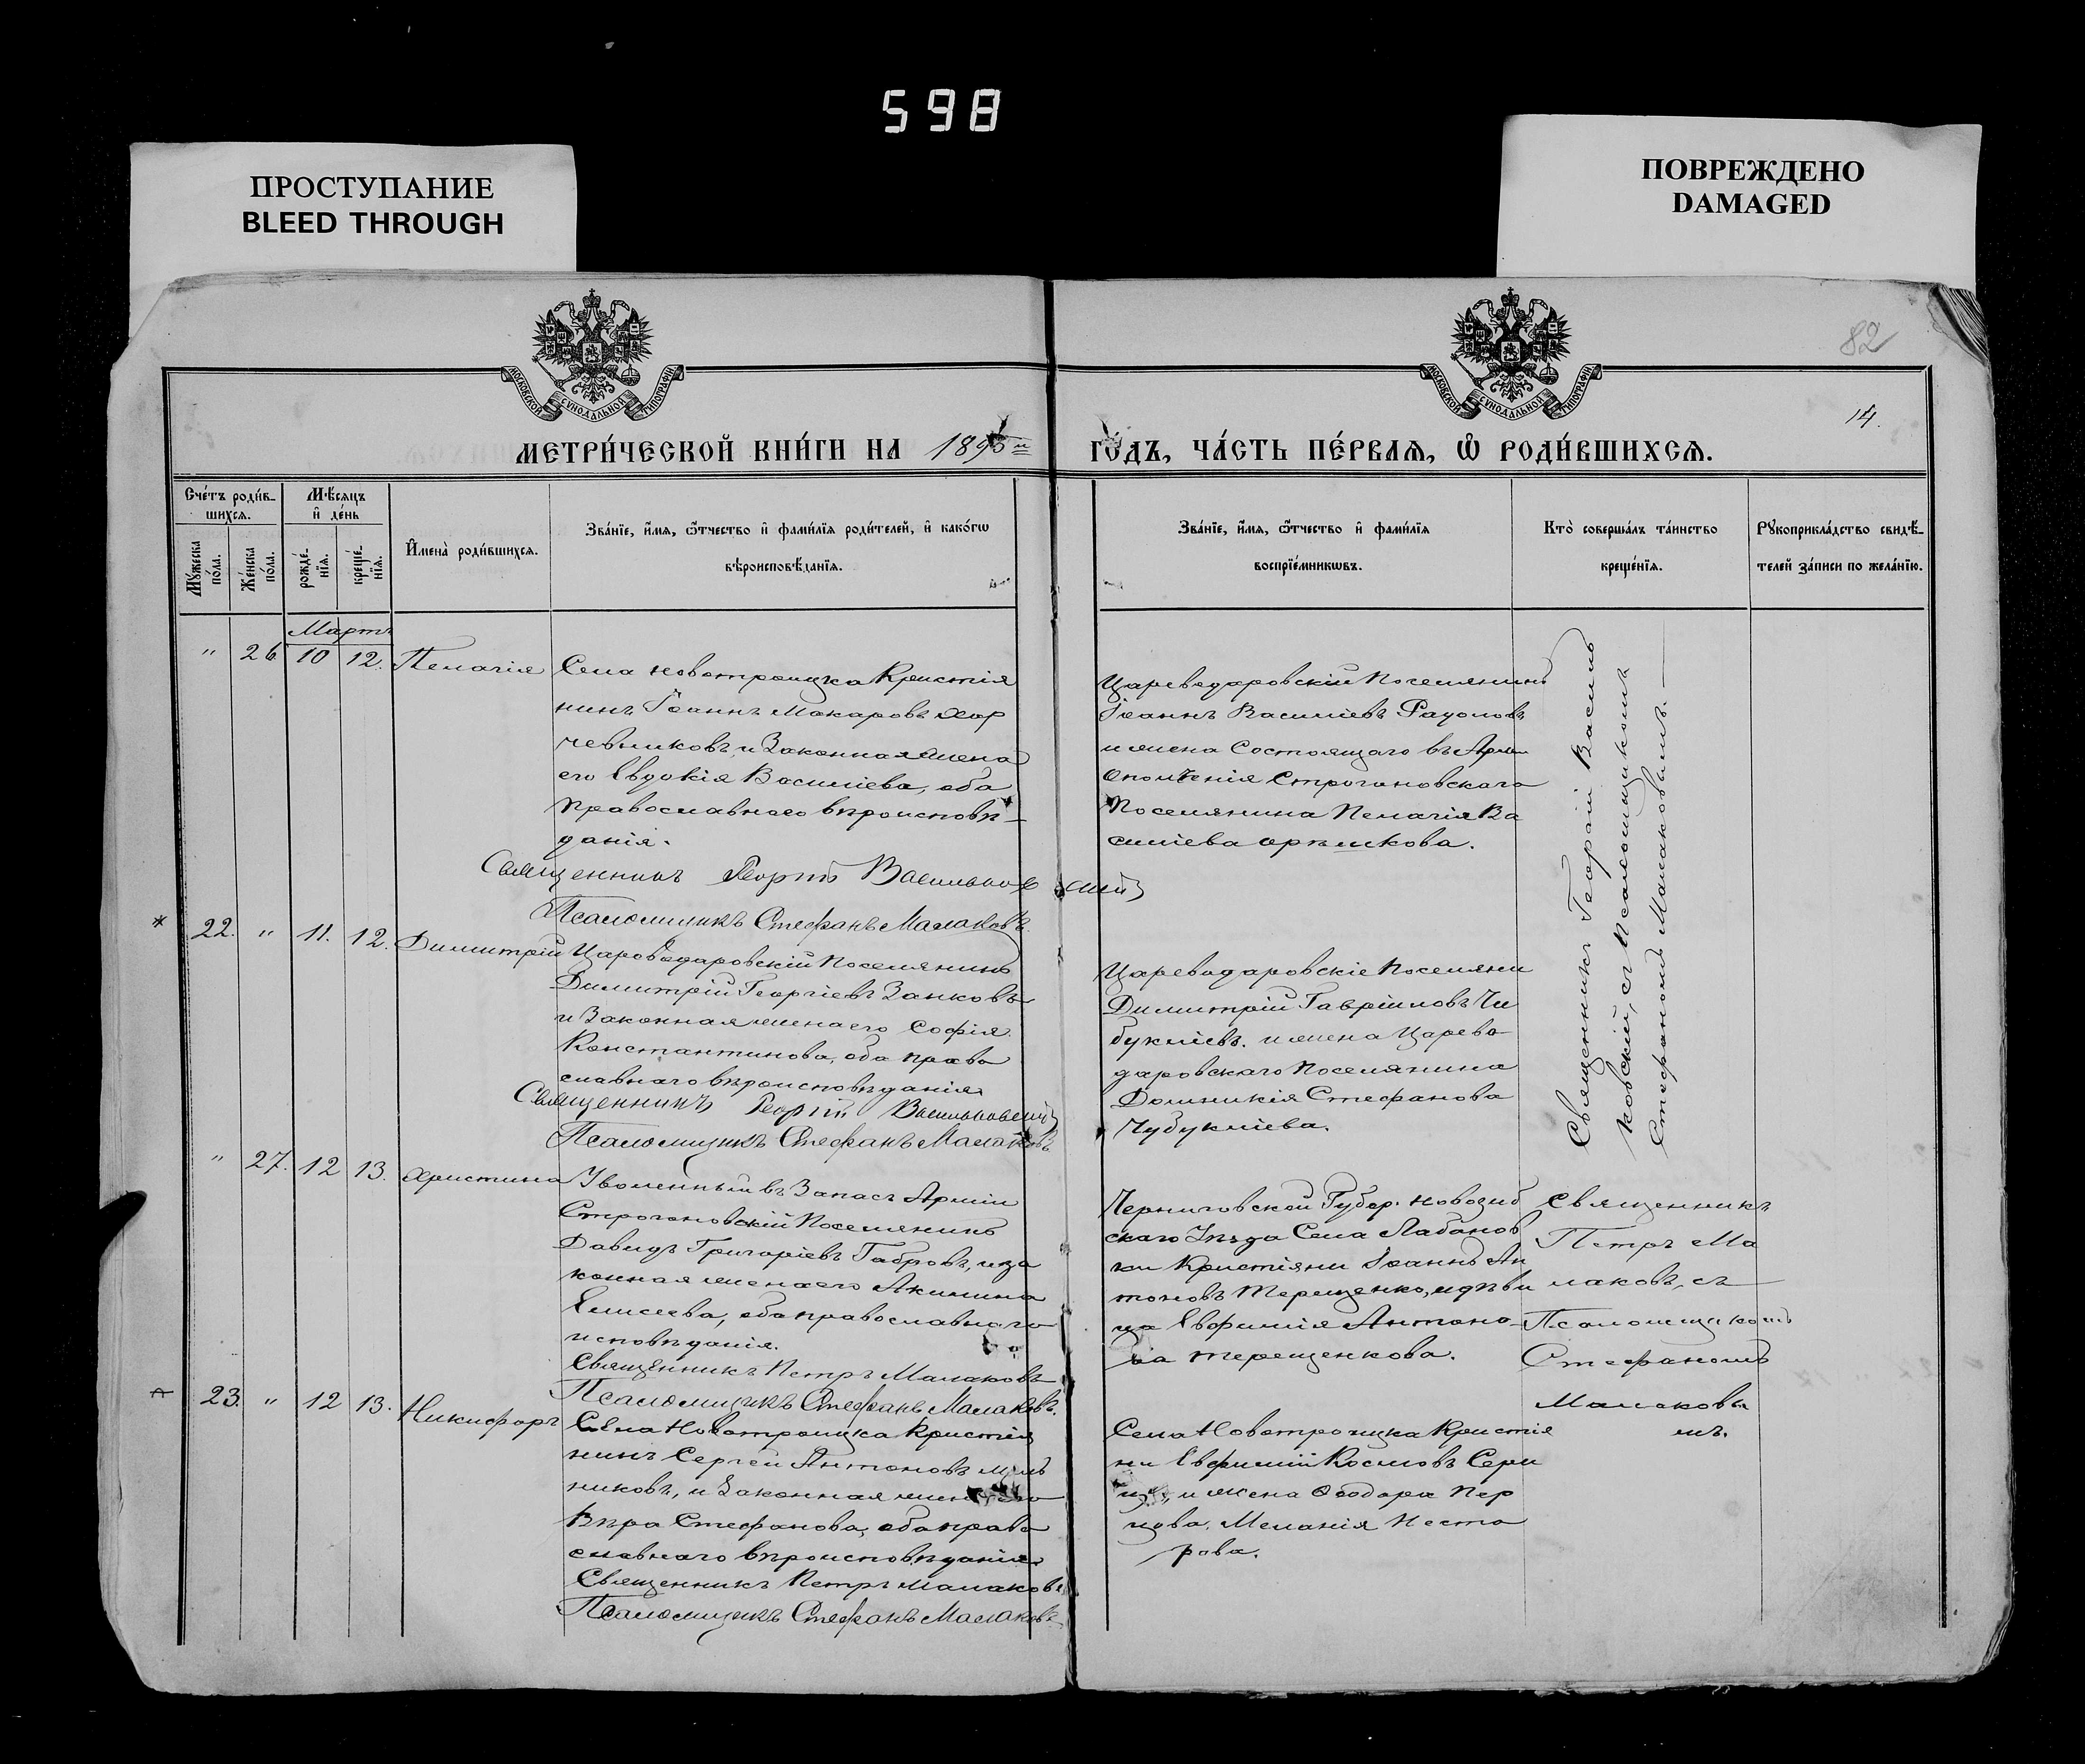 598
ПРОСТУПАНИЕ
BLEED THROUGH
ПОВРЕЖДЕНО
DAMAGED
82
14.
МОСКОВСКОЙ СѴНОДАЛЬНОЙ ТИПОГРАФІИ
МОСКОВСКОЙ СѴНОДАЛЬНОЙ ТИПОГРАФІИ
МЕТРИ́ЧЕСКОЙ КНИ́ГИ НА 189 й ГО́ДЪ, ЧА́СТЬ ПЕ́РВАѦ, Ѿ РОДИ́ВШИХСѦ.
Сче́тъ роди́в-
шихсѧ.
Мꙋ́жеска по́ла.
Же́нска по́ла.
Мѣ́сѧцъ
и҆ де́нь
рожде́-
нїѧ.
креще́-
нїѧ.
И҆мена̀ роди́вшихсѧ.
Зва́нїе, и҆́мѧ, ѻ҆́тчество и҆ фами́лїѧ роди́телей, и҆ како́гѡ
вѣроисповѣ́данїѧ.
Зва́нїе, и҆́мѧ, ѻ҆́тчество и҆ фами́лїѧ
воспрїе́мникѡвъ.
Кто̀ соверша́лъ та́инство
креще́нїѧ.
Рꙋкоприкла́дство свидѣ́-
телей за́писи по жела́нїю.
Мартъ
" 26. 10 12. Пелагія
Села Новотроицка Кристія
нинъ Іоаннъ Макаровъ Хар
чевниковъ и Законная жена
его Евдокія Василіева, оба
Православнаго вѣроисповѣ-
данія.
Священникъ Георгій Васильковскій
Псаломщикъ Стефанъ Малаковъ.
Цареведаровскій Поселянинъ
Іоаннъ Василіевъ
и жена Состоящаго въ
ополченія Строгановскаго
Поселянина Пелагія Ва
силіева
Священникъ Георгій Василь
ковскій, съ Псаломщикомъ
Стефаномъ Малаковымъ.
* 22. " 11. 12. Димитрій
Цареводаровскій Поселянинъ
Димитрій Георгіевъ Занковъ
и Законная жена его Софія
Константинова, оба право
славнаго вѣроисповѣданія
Священникъ Георгій Васильковскій
Псаломщикъ Стефанъ Малаковъ
Цареводаровскіе Поселяни
Димитрій Гавріиловъ Чи
букліевъ. и жена Царево
даровскаго Поселянина
Домникія Стефанова
Чубукліева.
" 27. 12 13. Христина
Уволенный въ Запасъ Арміи
Строгановскій Поселянинъ
Давидъ Григоріевъ Габровъ, и за
конная жена его Акилина
Елисеева, оба православнаго
исповѣданія.
Священникъ Петръ Малаковъ
Псаломщикъ Стефанъ Малаковъ.
Черниговской Губер. Новозиб
скаго Уѣзда Села Лабанов
ки Кристіяни Іоаннъ Ан
тоновъ Терещенко, и дѣви
ца Евфимія Антоно-
ва Терещенкова.
Священникъ
Петръ Ма
лаковъ, съ
Псаломщикомъ
Стефаномъ
Малаковы
мъ.
23. " 12 13. Никифоръ
Села Новотроицка Кристія
нинъ Сергей Антоновъ Мель
никовъ, и Законная жена его
Вѣра Стефанова, оба право
славнаго вѣроисповѣданія
Священникъ Петръ Малаковъ
Псаломщикъ Стефанъ Малаковъ
Села Новотроицка Кристія
ни Евфимій Космовъ
и жена Ѳеодора Пер
цова, Меланія Несто
рова.